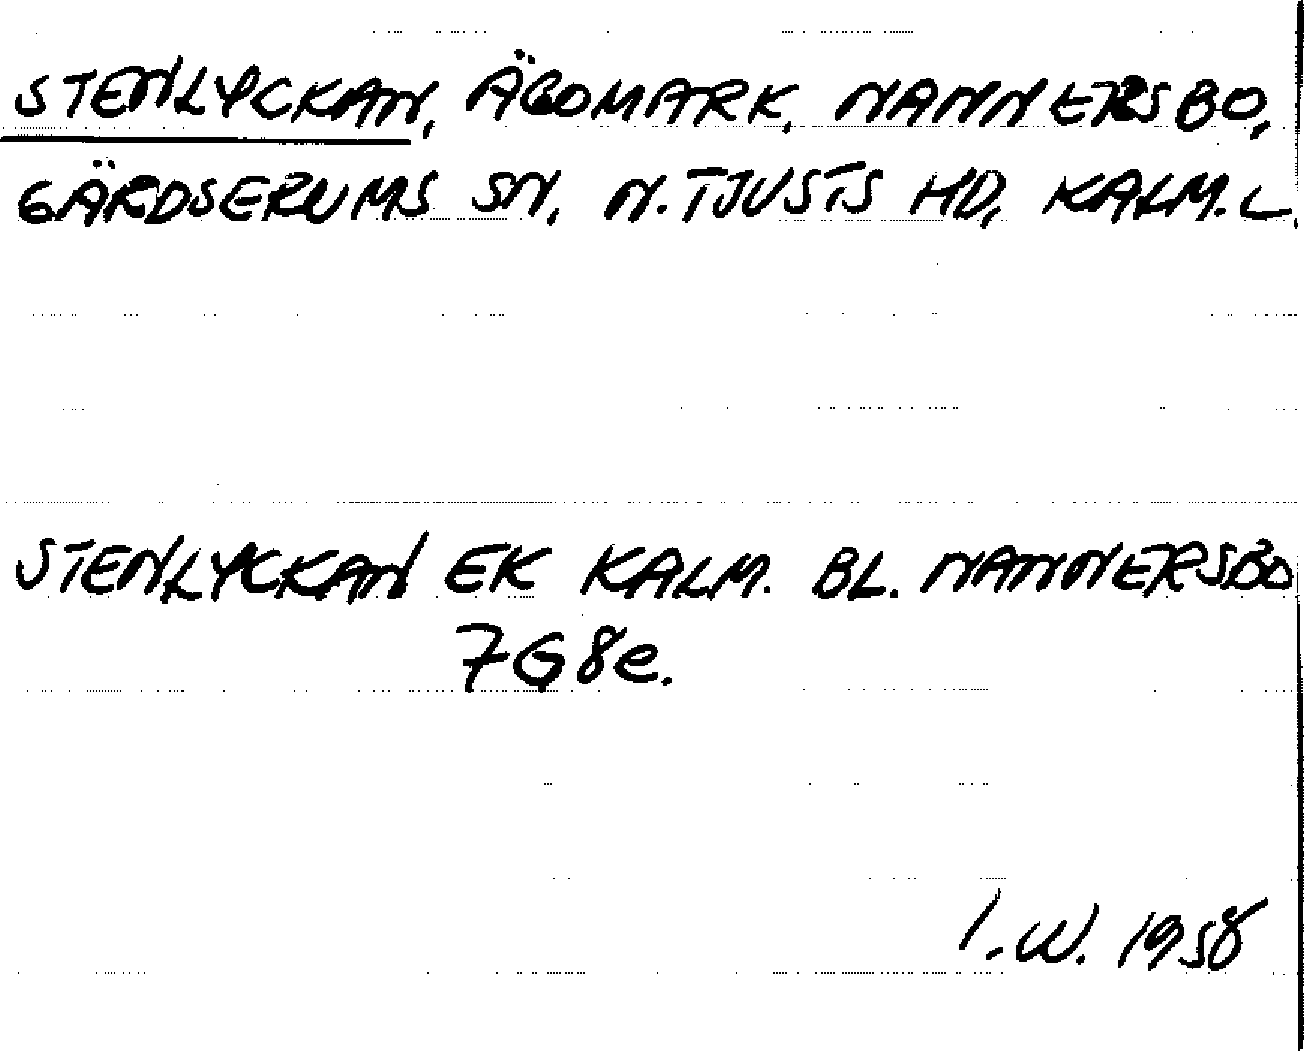 STENLYCKAN, ÄGOMARK, NANNERSBO,
GÄRDSERUMS SN, N. TJUSTS HD, KALM. L.
STENLYCKAN EK KALM. BL. NANNERSBO
7G8e.
I. W. 1958